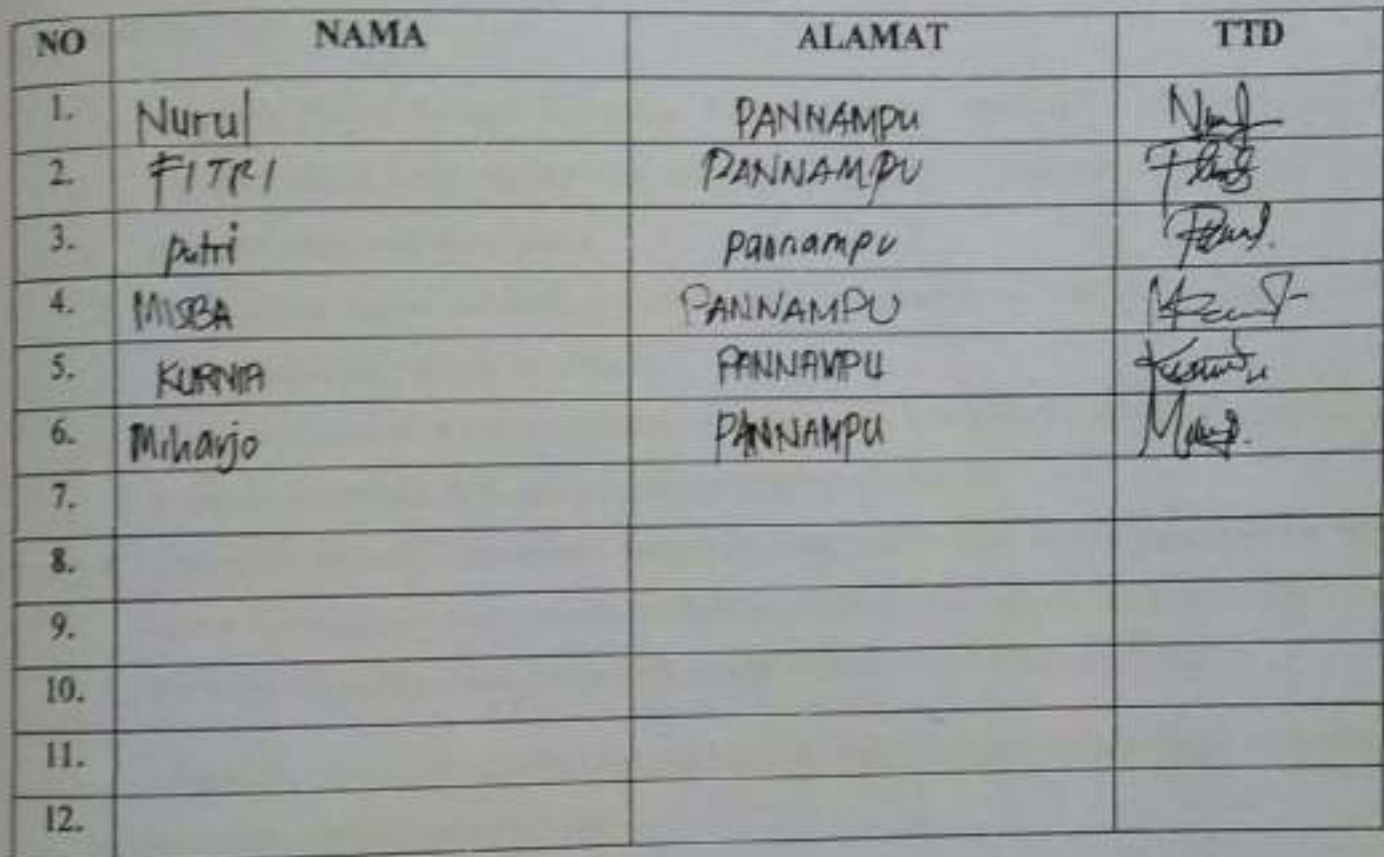 NO NAMA ALAMAT TTD
1. Nurul PANNAMPU
2. FITRI PANNAMPU
3. putri pannampu
4. MISBA PANNAMPU
5. KURNIA PANNAMPU
6. Miharjo PANNAMPU
7.
8.
9.
10.
11.
12.